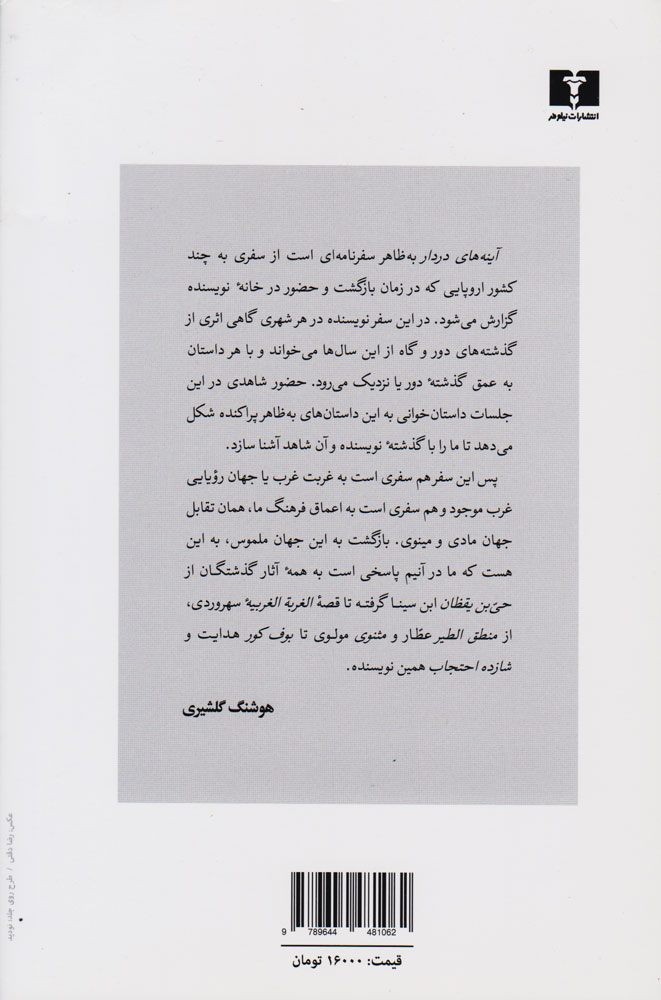 انتشارات نیلوفر
آینه‌های دردار به‌ظاهر سفرنامه‌ای است از سفری به چند
کشور اروپایی که در زمان بازگشت و حضور در خانهٔ نویسنده
گزارش می‌شود. در این سفر نویسنده در هر شهری گاهی اثری از
گذشته‌های دور و گاه از این سال‌ها می‌خواند و با هر داستان
به عمق گذشتهٔ دور یا نزدیک می‌رود. حضور شاهدی در این
جلسات داستان‌خوانی به این داستان‌های به‌ظاهر پراکنده شکل
می‌دهد تا ما را با گذشتهٔ نویسنده و آن شاهد آشنا سازد.
پس این سفر هم سفری است به غربت غرب یا جهان رؤیایی
غرب موجود و هم سفری است به اعماق فرهنگ ما، همان تقابل
جهان مادی و مینوی. بازگشت به این جهان ملموس، به این
هست که ما در آنیم پاسخی است به همهٔ آثار گذشتگان از
حیّ‌بن یقظان ابن سینا گرفته تا قصهٔ الغربة الغربیهٔ سهروردی،
از منطق الطیر عطّار و مثنوی مولوی تا بوف کور هدایت و
شازده احتجاب همین نویسنده.
هوشنگ گلشیری
9 789644 481062
قیمت: ۱۶۰۰۰ تومان
عکس: رضا دقتی / طرح روی جلد: